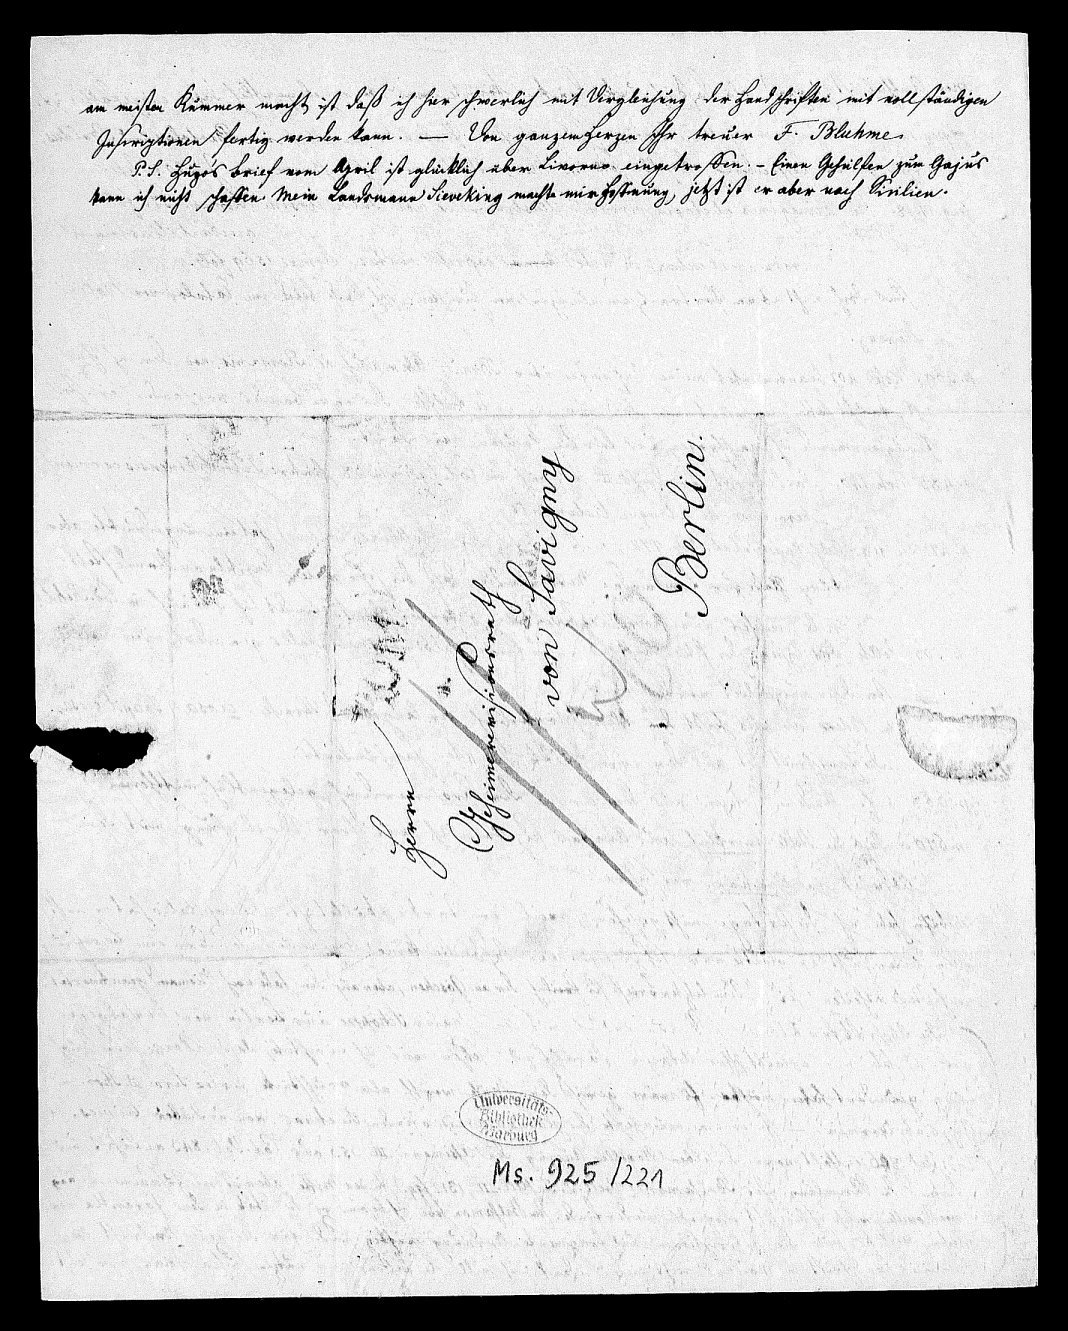 am meisten Kummer macht, ist daß ich hier schwerlich mit Vergleichung der Handschriften mit vollständigen
Inscriptionen fertig werden kann. — Von ganzem Herzen Ihr treuer F. Bluhme.
P. S. Hugos Brief vom April ist glücklich über Livorno eingetroffen. – Einen Gehülfen zum Gajus
kann ich nicht schaffen. Mein Landsmann Sieveking machte mir Hoffnung, jetzt ist er aber nach Sicilien.
Herrn
Geheimerevisionsrath
von Savigny
Berlin.
Universitäts-
Bibliothek
Marburg
Ms. 925/221